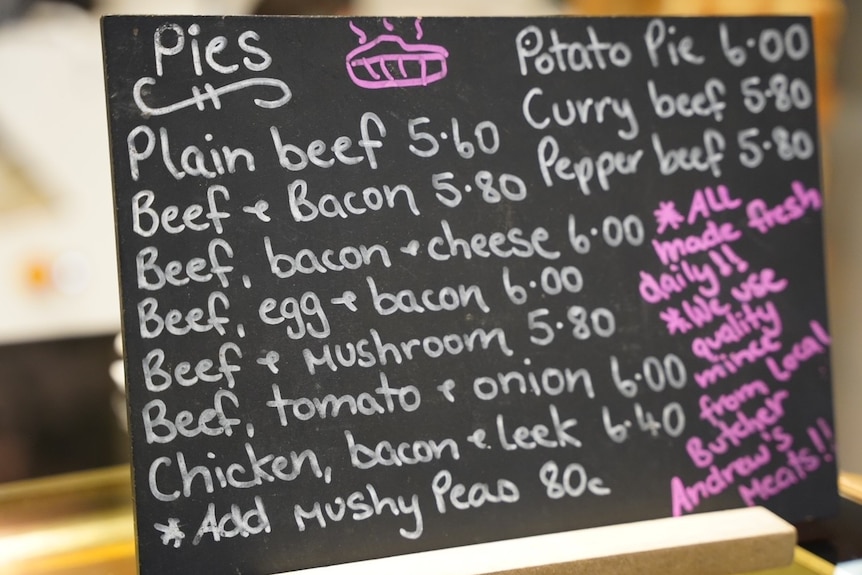 Pies
Plain beef 5.60
Beef & Bacon 5.80
Beef, bacon & cheese 6.00
Beef, egg & bacon 6.00
Beef & Mushroom 5.80
Beef, tomato & onion 6.00
Chicken, bacon & leek 6.40
*Add Mushy Peas 80c
Potato Pie 6.00
Curry beef 5.80
Pepper beef 5.80
*All
made fresh
daily!!
*We use
quality
mince
from Local
Butcher
Andrew's
Meats!!